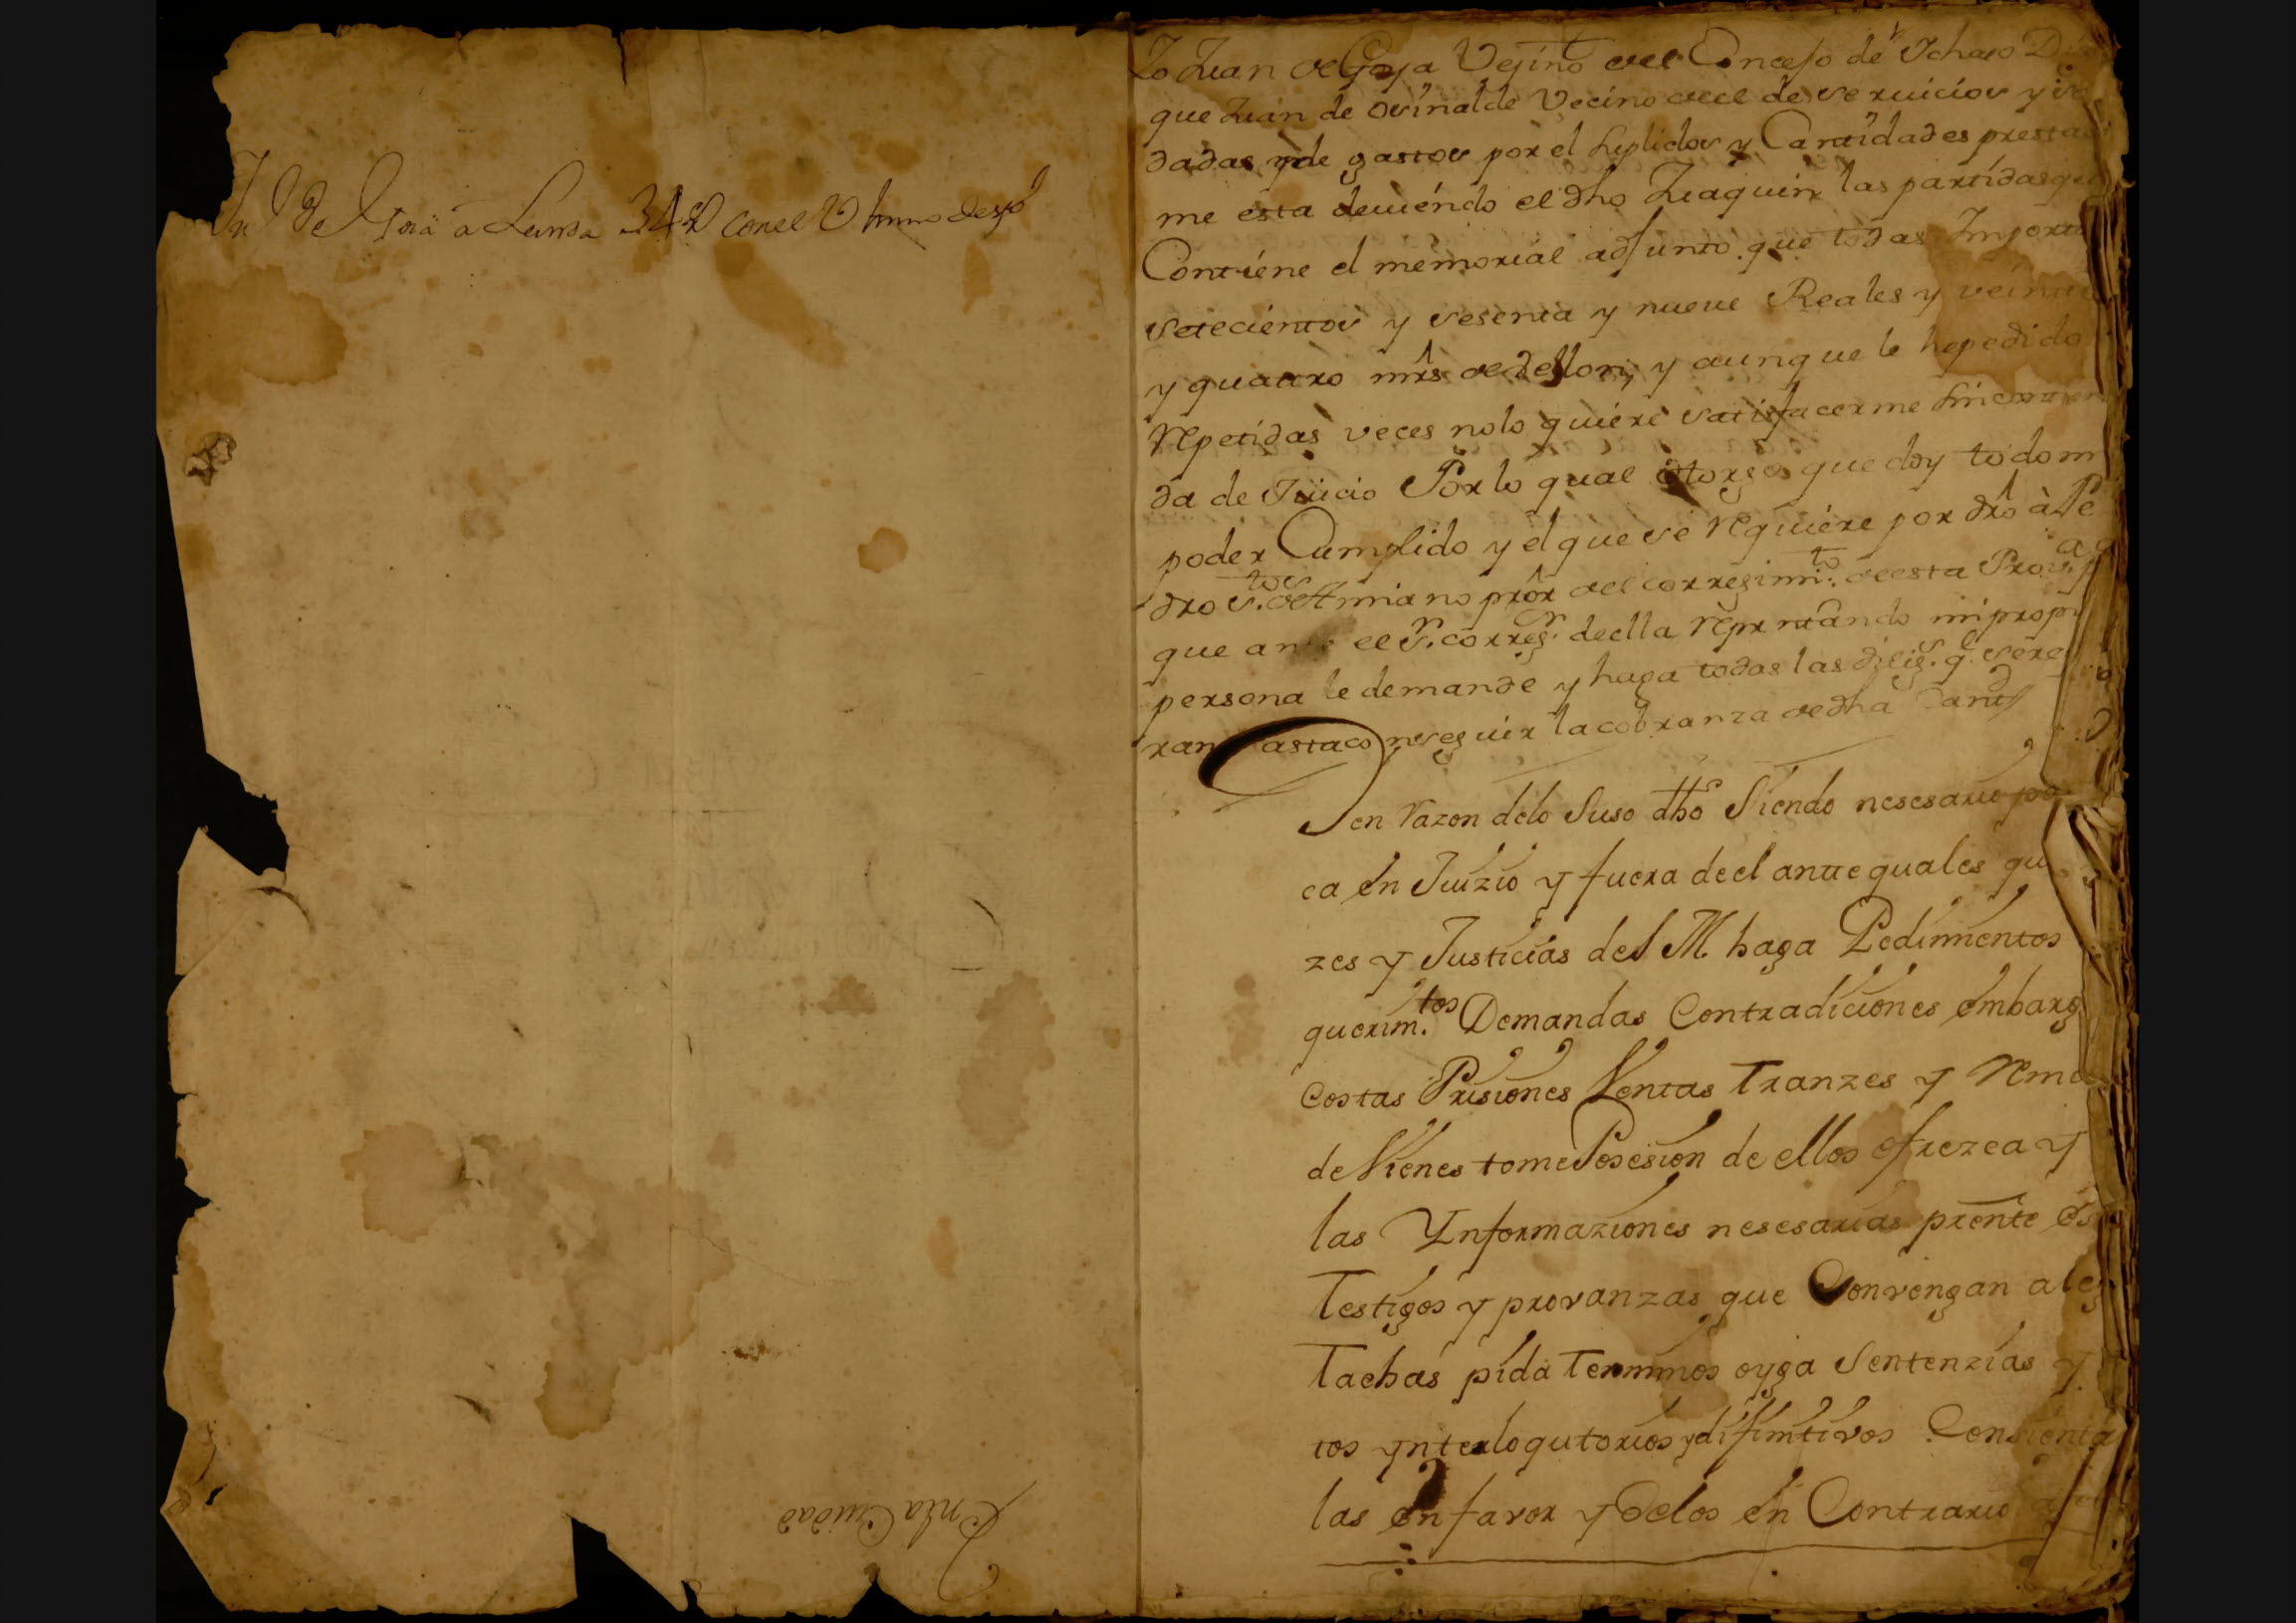 de a Landa con el
En la Ciudad
Yo Juan de Goya Vezino del Concejo de Ichaso
que Juan de Vecino de el de seruicios y
dadas y de gastos por el suplidos y Cantidades presta
me esta deuiendo el dho Juaquin las partidas que
Contiene el memorial adjunto que todas Importa
setecientos y sesenta y nueue Reales y veinte
y quattro mrs de vellon, y aunque le he pedido
Repetidas veces no lo quiere satisfacerme sin
da de Juicio Por lo qual otorgo que doy todo m
poder Cumplido y el que se Requiere por dro à Pe
dro de Amiano pror del corregimto. de esta Prova
que ante el Sr. corregr. de ella Reprntando mi prop
persona le demande y haga todas las dilig.s q.e sere
ran asta conseguir la cobranza de dha Cantd
en razon de lo Suso dho Siendo nesesario
ca en Juizio y fuera de el antte quales qu
zes y Justicias de S M. haga Pedimientos
querim.tos Demandas Contradiciones embarg
costas Prisiones Ventas Tranzes y Rema
de Vienes tome Posesion de ellos ofrezca y
las Ynformaziones nesesarias prente es
Testigos y provanzas que Convengan aleg
Tachas pida Terminos oyga Sentenzias y
tos ynterlogutorios y difinitivos Consienta
las en favor y Delos en Contrario